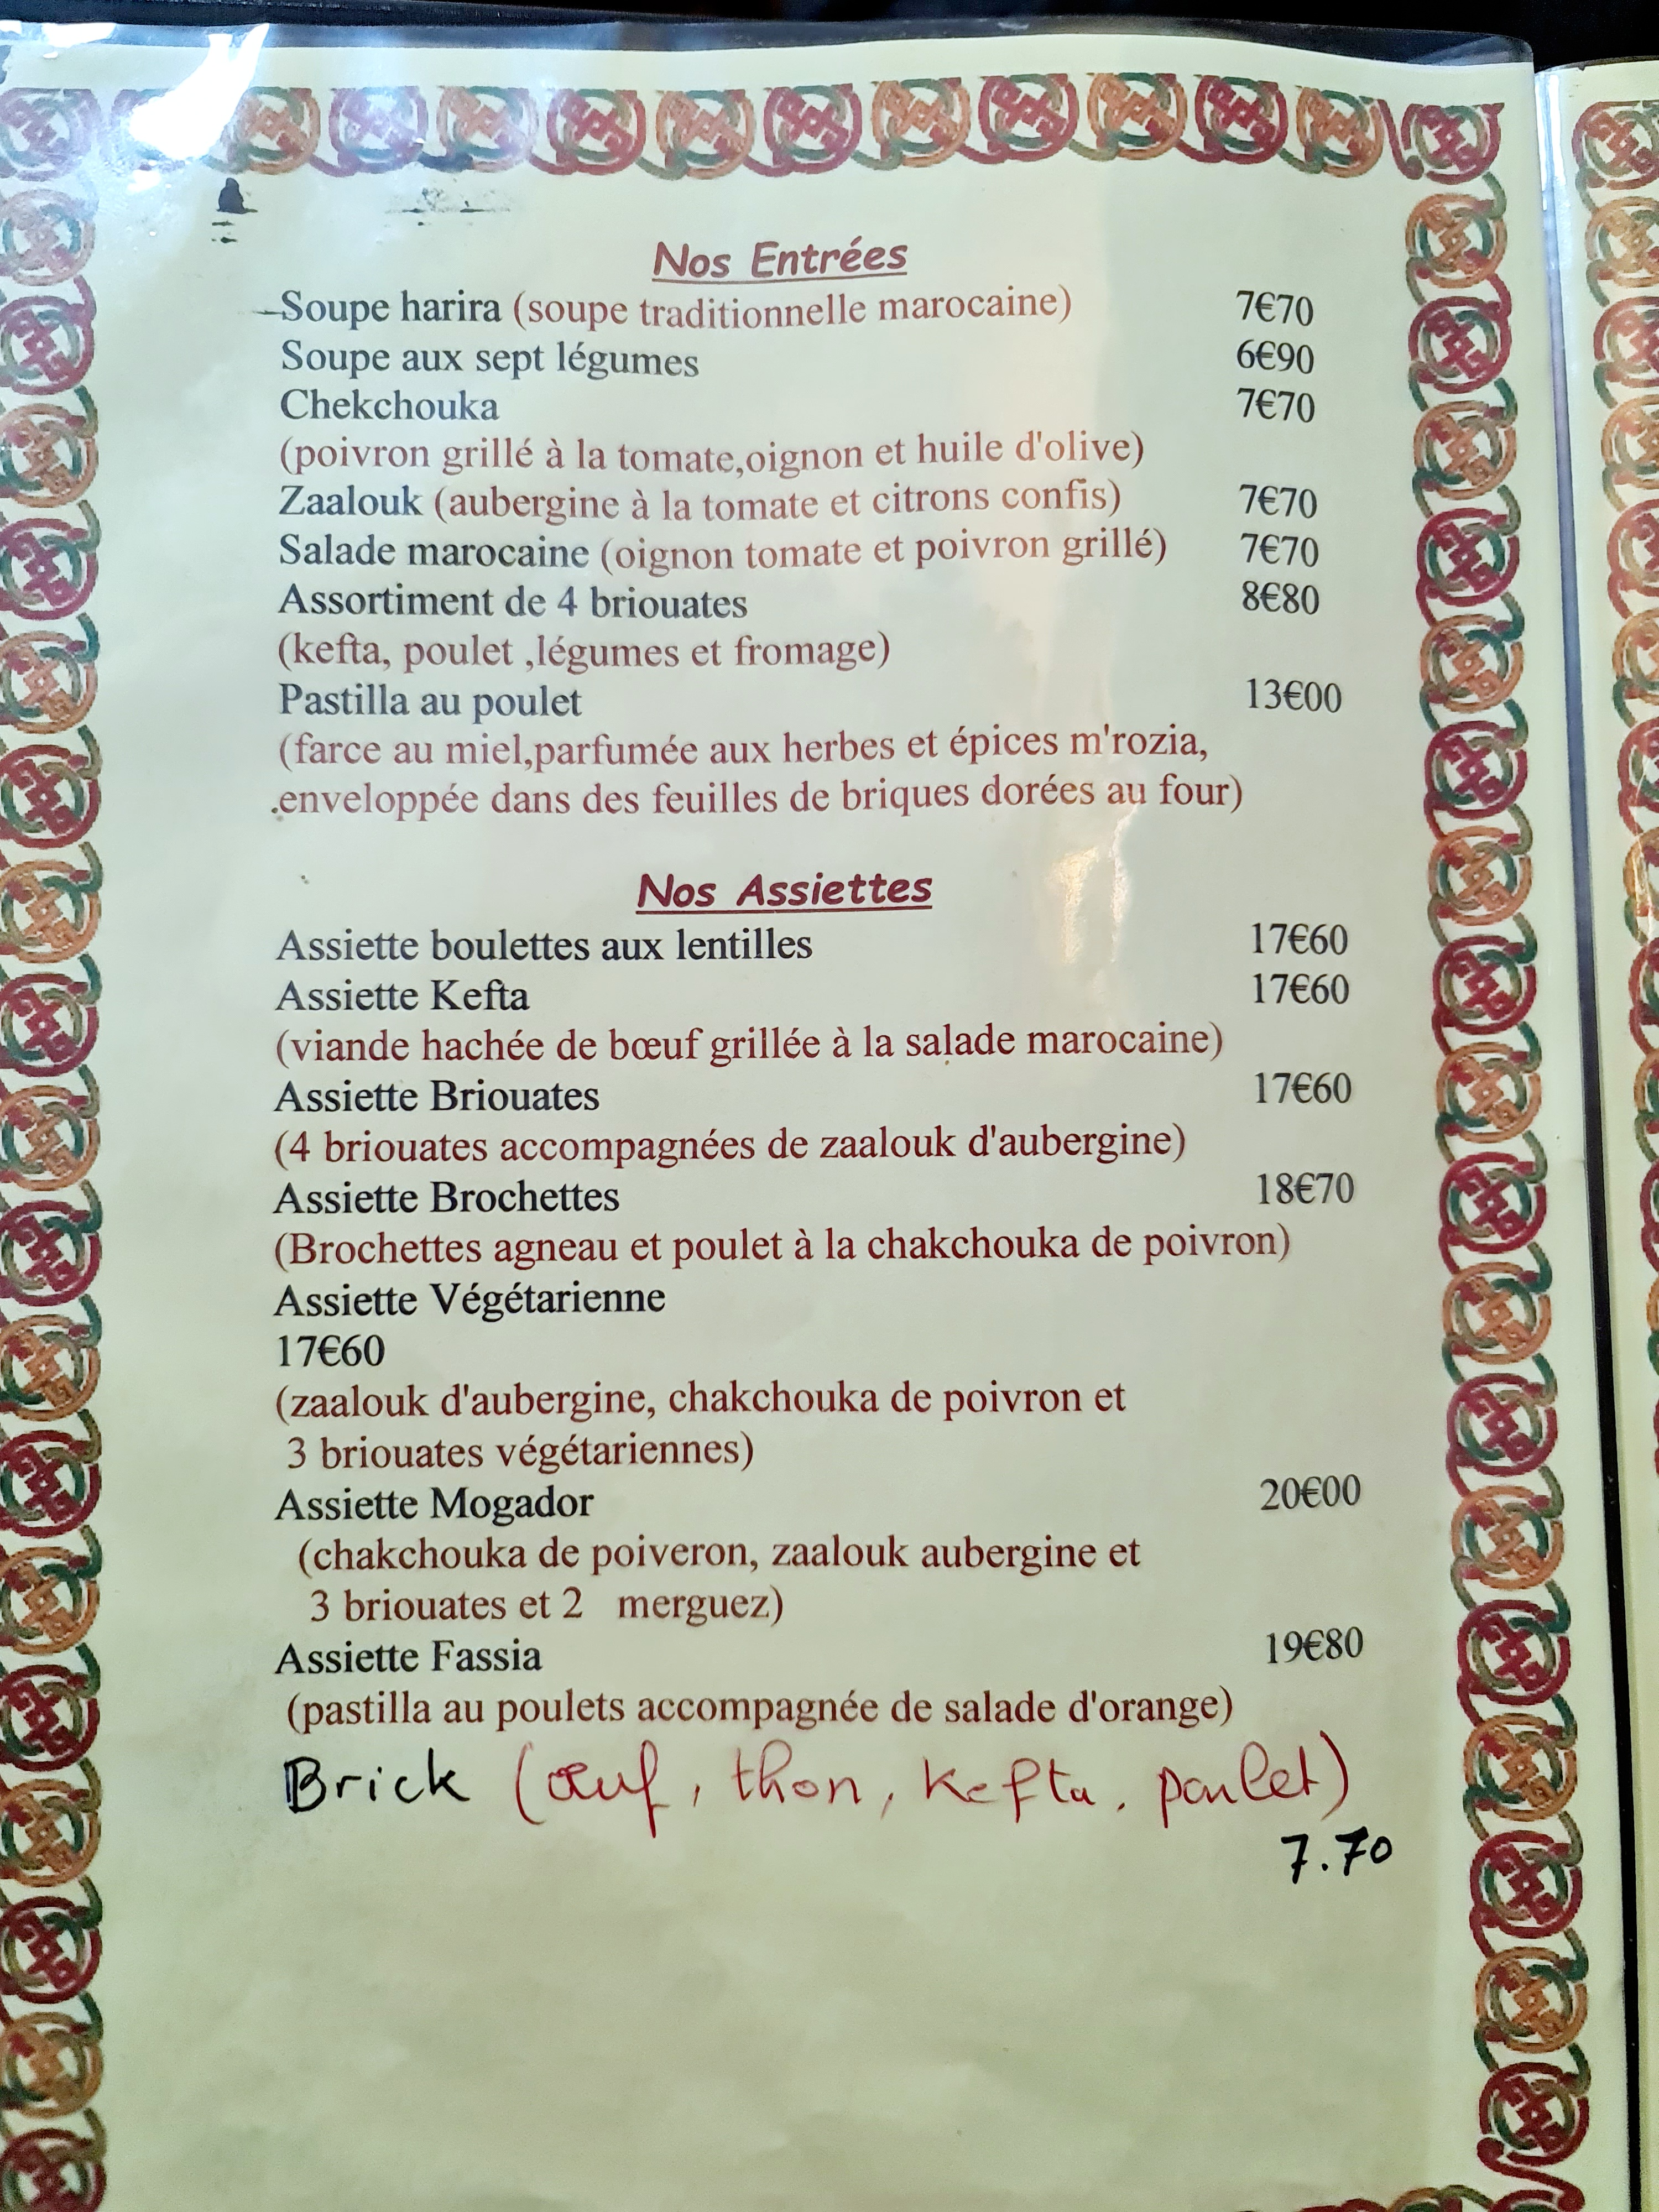 Nos Entrées
Soupe harira (soupe traditionnelle marocaine) 7€70
Soupe aux sept légumes 6€90
Chekchouka 7€70
(poivron grillé à la tomate,oignon et huile d'olive)
Zaalouk (aubergine à la tomate et citrons confis) 7€70
Salade marocaine (oignon tomate et poivron grillé) 7€70
Assortiment de 4 briouates 8€80
(kefta, poulet ,légumes et fromage)
Pastilla au poulet 13€00
(farce au miel,parfumée aux herbes et épices m'rozia,
enveloppée dans des feuilles de briques dorées au four)
Nos Assiettes
Assiette boulettes aux lentilles 17€60
Assiette Kefta 17€60
(viande hachée de bœuf grillée à la salade marocaine)
Assiette Briouates 17€60
(4 briouates accompagnées de zaalouk d'aubergine)
Assiette Brochettes 18€70
(Brochettes agneau et poulet à la chakchouka de poivron)
Assiette Végétarienne
17€60
(zaalouk d'aubergine, chakchouka de poivron et
3 briouates végétariennes)
Assiette Mogador 20€00
(chakchouka de poiveron, zaalouk aubergine et
3 briouates et 2 merguez)
Assiette Fassia 19€80
(pastilla au poulets accompagnée de salade d'orange)
Brick (œuf, thon, Kefta, poulet)
7.70